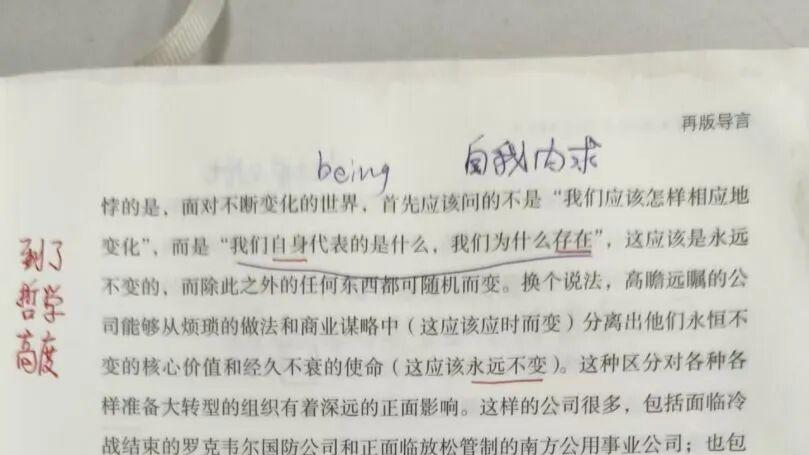 再版导言
being 自我内求
悖的是，面对不断变化的世界，首先应该问的不是“我们应该怎样相应地
变化”，而是“我们自身代表的是什么，我们为什么存在”，这应该是永远
不变的，而除此之外的任何东西都可随机而变。换个说法，高瞻远瞩的公
司能够从烦琐的做法和商业谋略中（这应该应时而变）分离出他们永恒不
变的核心价值和经久不衰的使命（这应该永远不变）。这种区分对各种各
样准备大转型的组织有着深远的正面影响。这样的公司很多，包括面临冷
战结束的罗克韦尔国防公司和正面临放松管制的南方公用事业公司；也包
到了
哲学
高度